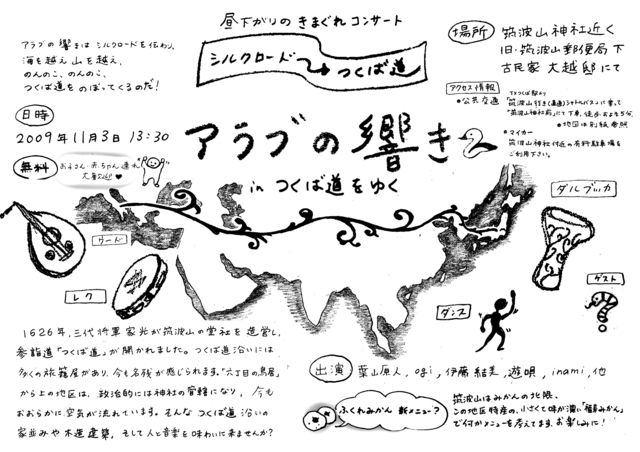 昼下がりの きまぐれ コンサート
アラブの響きは シルクロードを伝わり、
海を越え 山を越え、
のんのこ、のんのこ、
つくば道を のぼってくるのだ!
シルクロード
つくば道
場所
筑波山神社近く
旧・筑波山郵便局下
古民家 大越邸にて
アクセス情報
・公共交通
TXつくば駅より
「筑波山行き(直通)シャトルバス」に乗って
「筑波山神社前」にて下車、徒歩およそ5分。
・地図は別紙参照
・マイカー
筑波山神社付近の有料駐車場を
ご利用下さい。
日時
2009年11月3日 13:30
無料
お子さん・赤ちゃん連れ
大歓迎♥
アラブの響き2
in つくば道をゆく
ウード
レク
ダルブッカ
ゲスト
ダンス
1626年、三代将軍家光が筑波山の堂社を造営し、
参詣道「つくば道」が開かれました。つくば道沿いには
多くの旅籠屋があり、今も名残が感じられます。"六丁目の鳥居"
から上の地区は、政治的には神社の管轄になり、今も
おおらかに空気が流れています。そんな つくば道沿いの
家並みや木造建築、そして人と音楽を味わいに来ませんか?
出演
葉山原人、ogi、伊藤結美、遊唄、inami、他
ふくれみかん 新メニュー?
筑波山はみかんの北限。
この地区特産の、小さくて味が濃い「福来みかん」
で何かメニューを考えてます。お楽しみに!